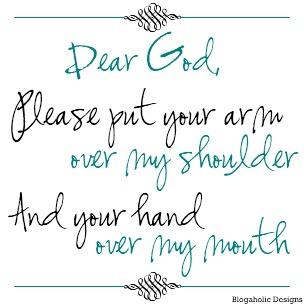 Dear God,
Please put your arm
over my shoulder
And your hand
over my mouth
Blogaholic Designs